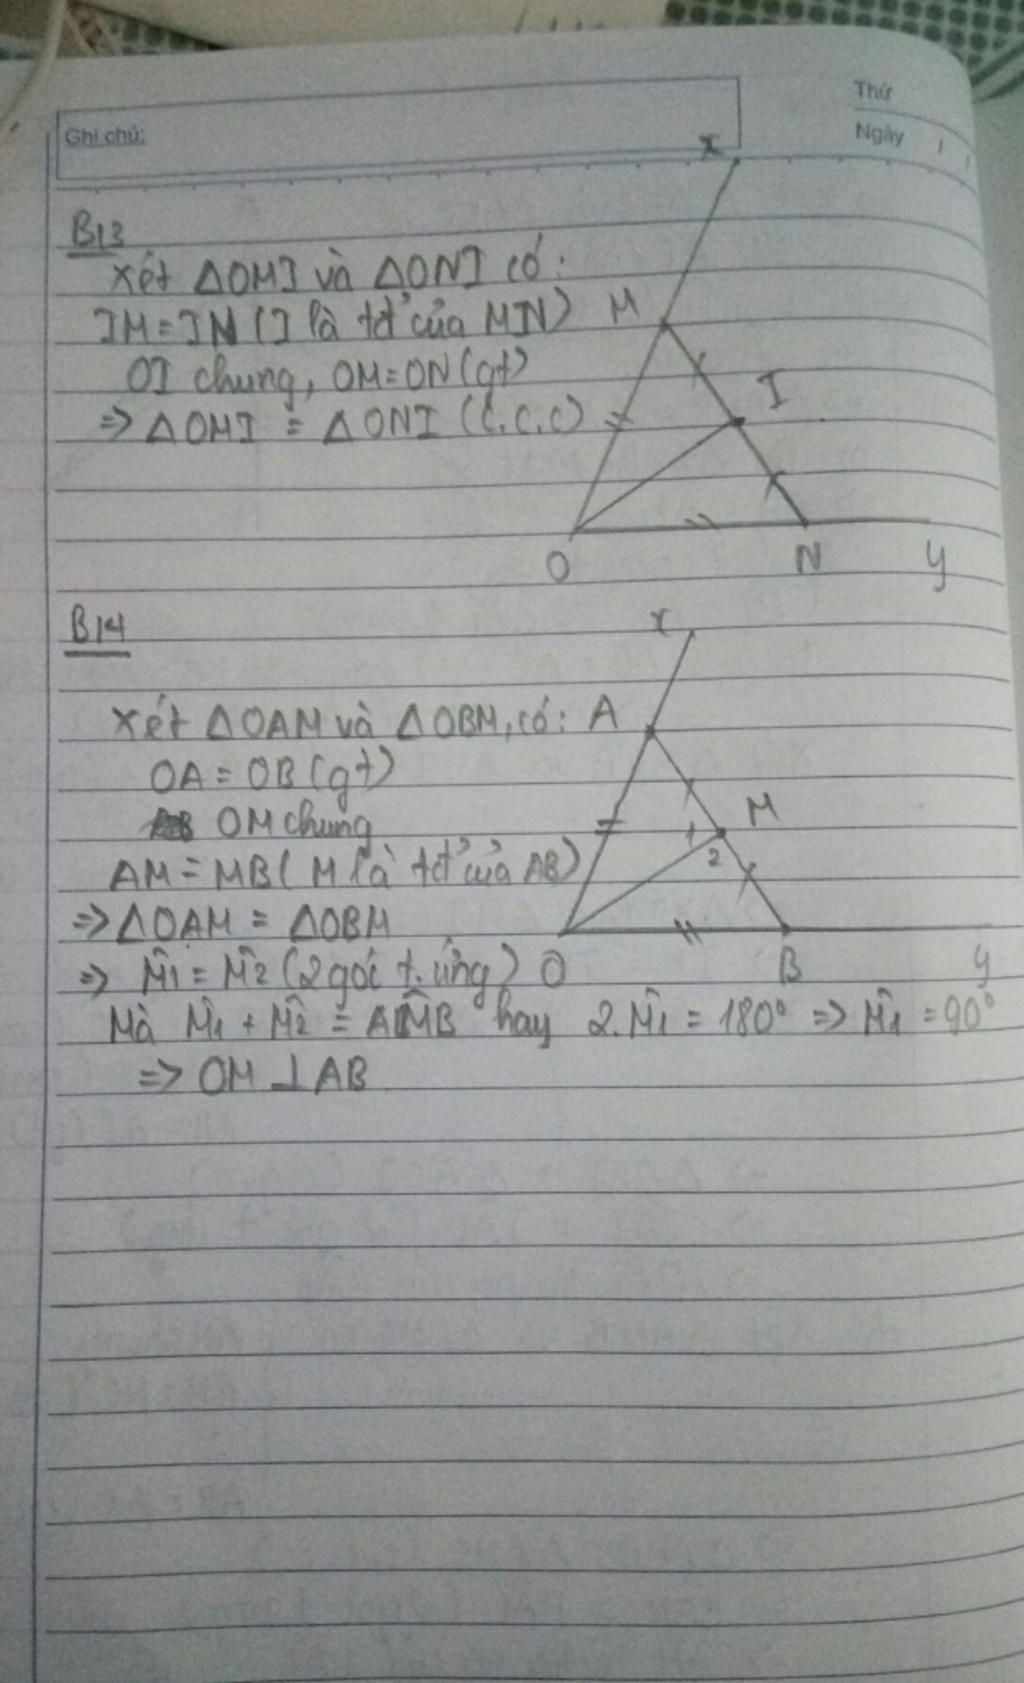 Thứ
Ghi chú:
Ngày / /
x
B13
Xét ΔOMI và ΔONI có:
IM = IN (I là tđ' của MN) M
OI chung, OM = ON (gt) I
=> ΔOMI = ΔONI (C.C.C)
O N y
B14
x
Xét ΔOAM và ΔOBM, có: A
OA = OB (gt)
OM chung M
1
2
AM = MB ( M là tđ' của AB)
=> ΔOAM = ΔOBM
=> M̂1 = M̂2 (2 góc t.ứng) O B y
Mà M̂1 + M̂2 = AM̂B hay 2. M̂1 = 180° => M̂1 = 90°
=> OM ⊥ AB